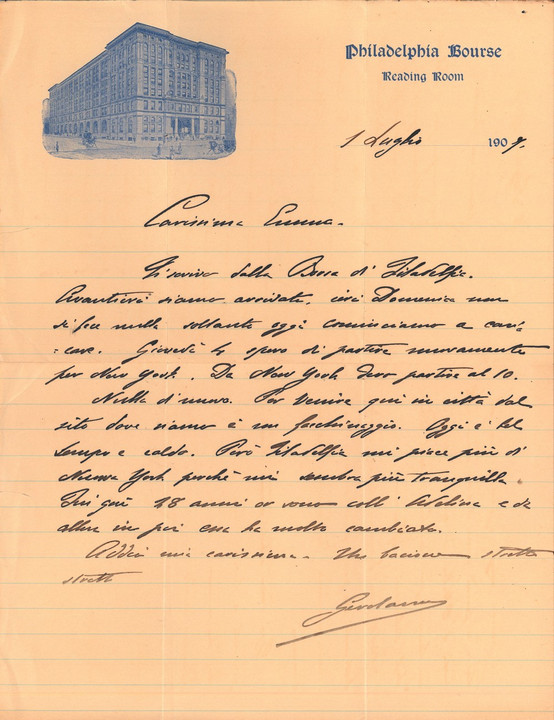 Philadelphia Bourse
Reading Room
1 Luglio 1907.
Carissima Emma.
Ti scrivo dalla Borsa di Filadelfia.
Avantieri siamo arrivati, ieri Domenica non
si fece nulla soltanto oggi cominciamo a cari-
:care. Giovedì 4 spero di partire nuovamente
per New York. Da New York devo partire al 10.
Nulla di nuovo. Per venire qui in città dal
sito dove siamo è un facchinaggio. Oggi è bel
tempo e caldo. Però Filadelfia mi piace più di
Nuova York perchè mi sembra più tranquilla
Fui quì 28 anni or sono coll' Adelina e da
allora in poi essa ha molto cambiato.
Addio mia carissima. Un bacione stretto
stretto